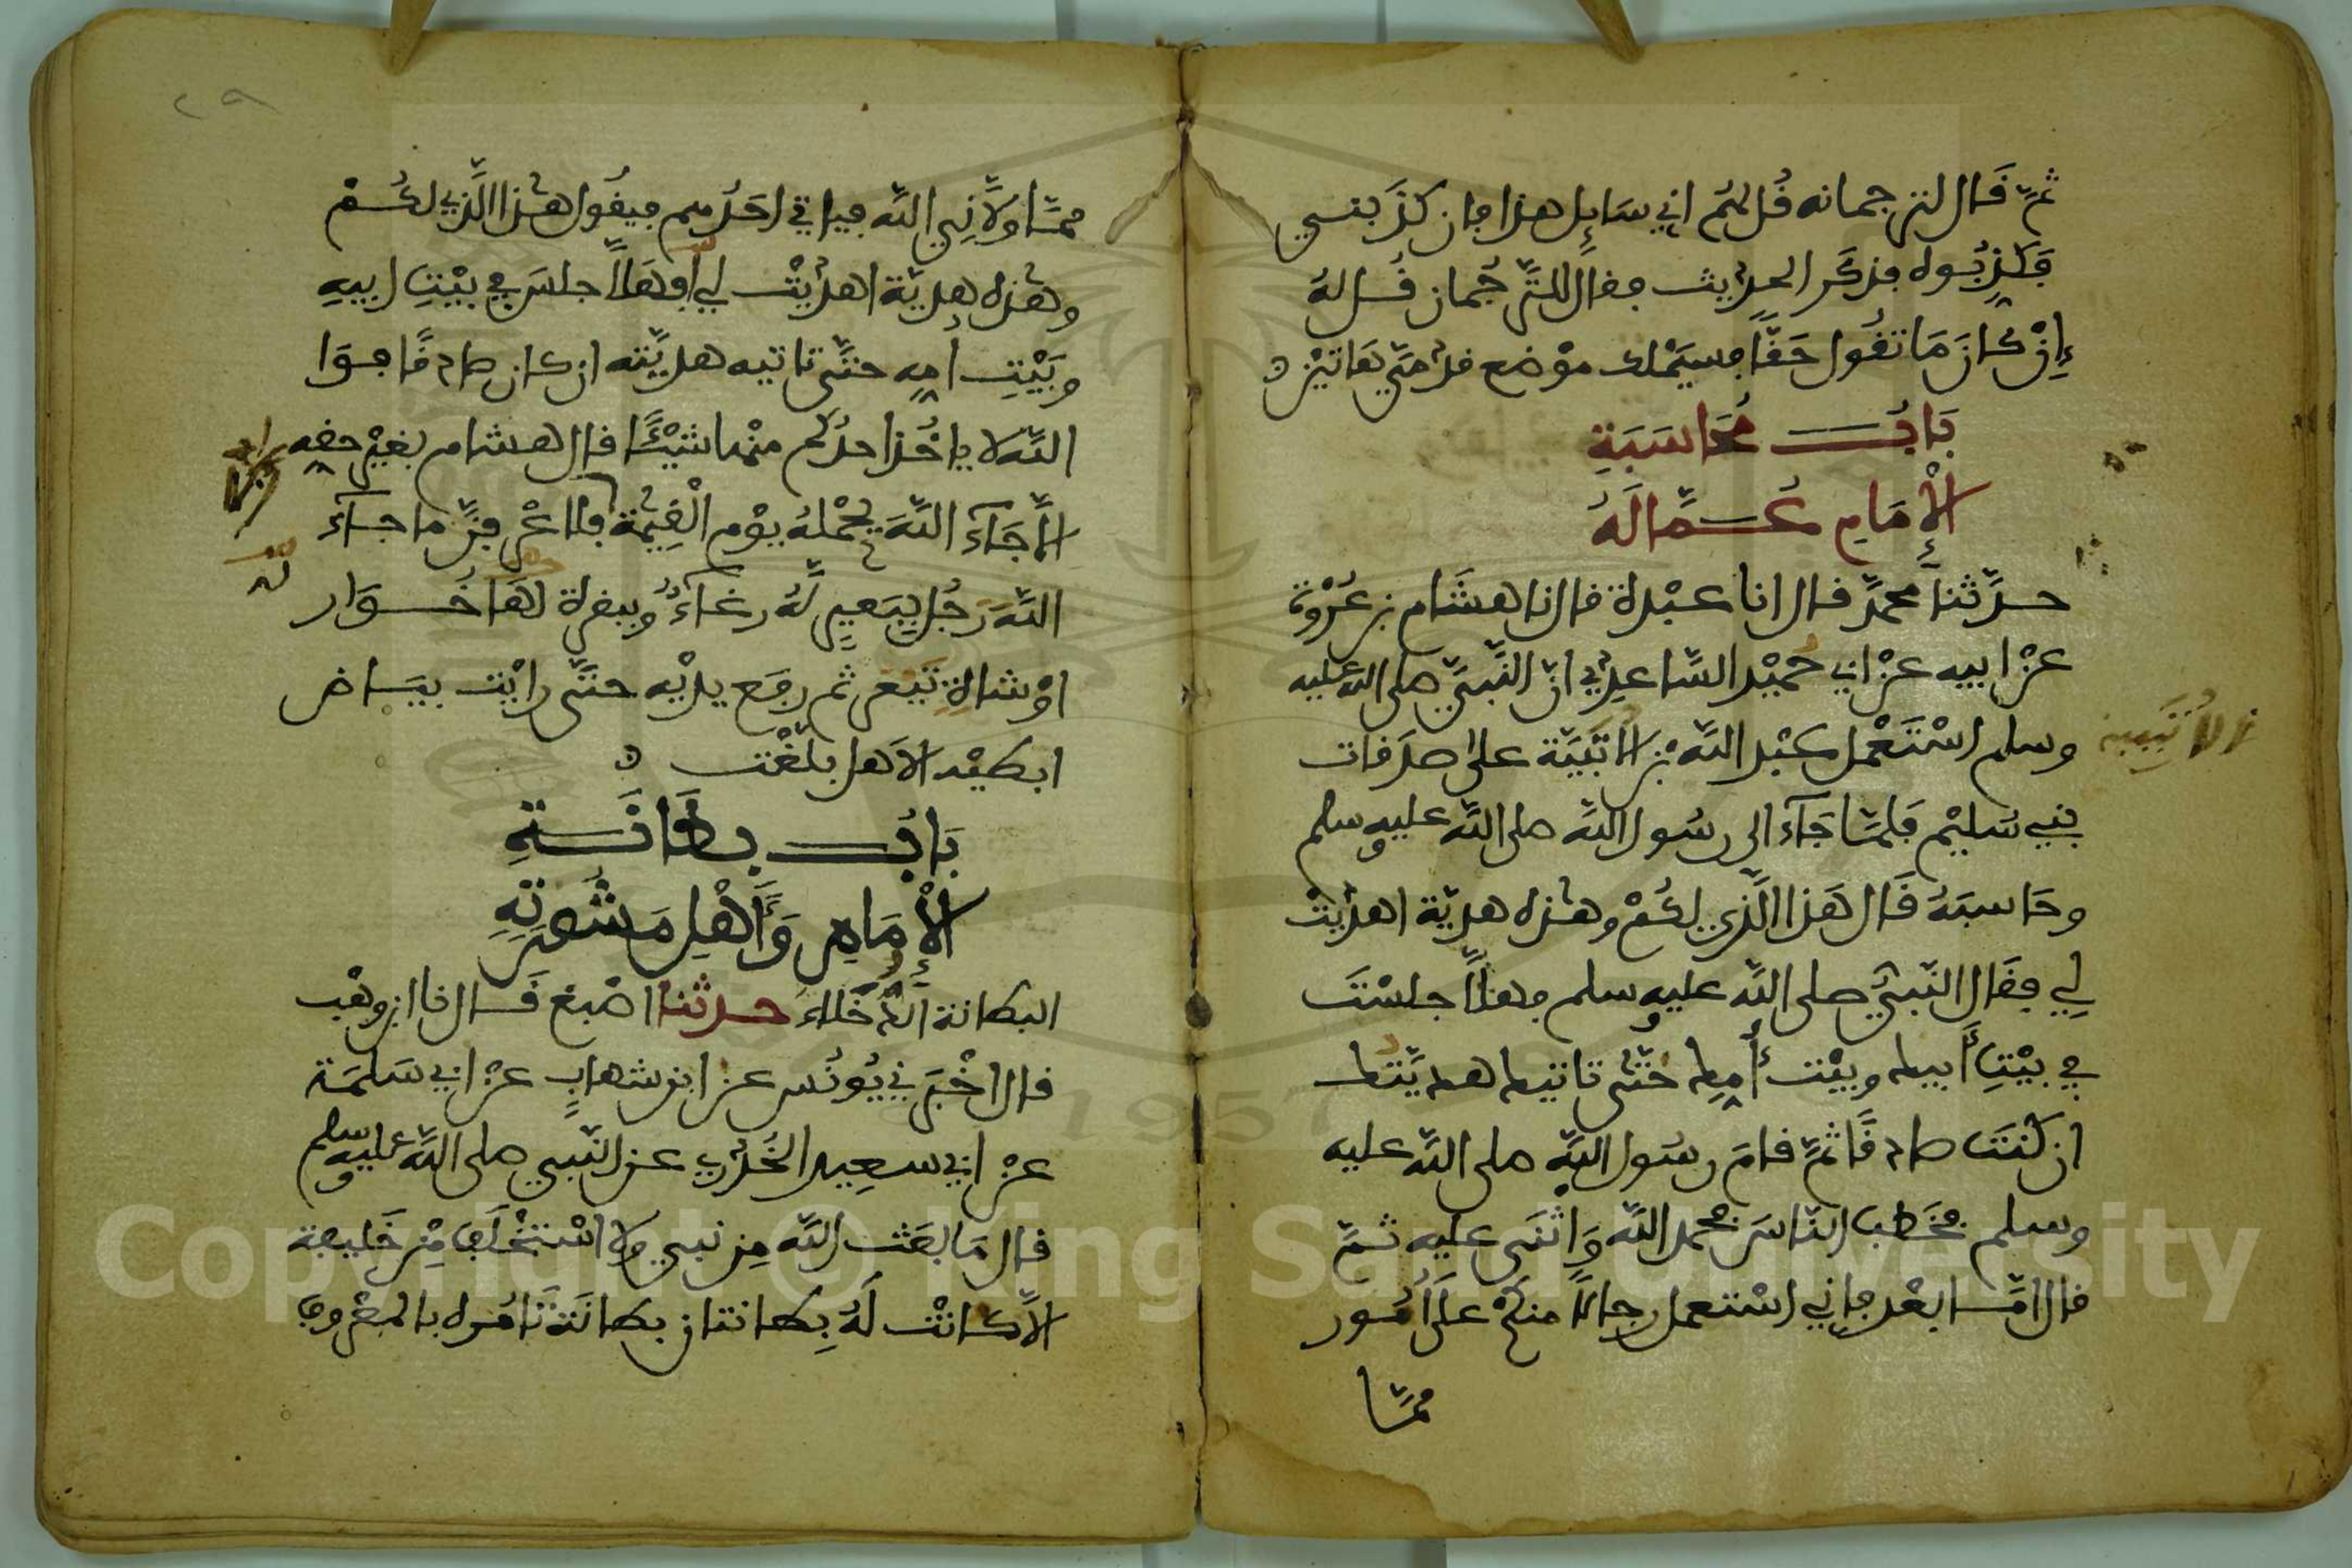 ثمّ قَال لترجمانه قُل لهُم اني سَايِل هذا فان كذَبني
فَكذِّبُوه فذكَر الحديث فقال للتّرجُمان قُل لهُ
إِنْ كانَ مَا تقُول حَقًّا فسيَمْلك موْضع قدَمَيّ هَاتيْن
بَابُ مُحَاسَبَةِ
الْإِمَامِ عُمَّالَهُ
حدّثنا محمدٌ قال انا عبْدة قال نا هشَام بن عُرْوة
عنْ ابيه عنْ ابي حُميْد السّاعِدِي انّ النّبيّ صلى الله عليه
وسلم اسْتَعْمل عبْد الله بن الاتَبِيَّة على صدَقات
ابن الأُتَبِيَّة
بني سُليْم فلمّا جَآءَ الى رسُول الله صلى الله عليه وسلم
وحَاسبَهُ قَال هَذا الّذي لكُمْ وهٰذه هديّة اهدِيَتْ
لِي فقَال النّبيّ صلى الله عليه وسلم فهلّا جلسْتَ
في بيْتِ أَبيك وبيْت أُمِك حَتّى تاتيك هديّتك
ان كنتَ صادقًا ثمّ قامَ رسُول الله صلى الله عليه
وسلم فخَطب النّاسَ فحمد الله وَاثْنَى عليه ثمّ
قال امّا بعْد فاني اسْتعمل رجالًا منكُمْ على أُمُور
ممّا
٢٩
ممّا ولّانِي الله فياتي احَدُهم فيقُول هٰذا الّذي لكُمْ
وهٰذه هديّة اهدِيَتْ لي فهَلّا جلسَ في بيْتِ ابيهِ
وبَيْتِ امِه حتّى تاتيه هديّته ان كان صادقًا فوَا
الله لا ياخُذ احدُكم منْها شيْئًا قال هشام بغيْر حقِه
الّا جَآءَ اللهَ يحْملهُ يوْم الْقيٰمة فلا عْرفنّ ما جآءَ
اللهَ رَجُل ببَعِيرٍ لّهُ رغآءٌ وببقرة لهَا خُوَار
اوْ شاةٍ تَيْعَر ثم رفَع يديْه حتّى رايْت بيَاض
ابطيْه الَا هل بلّغْت
بَابُ بِطَانَةِ
الْإِمَامِ وَأَهْلِ مَشُورَتِهِ
البطانة الدُّخَلاء حدثنا اصْبغ قَال نا ابن وهْب
قال اخْبَرَني يُونُس عن ابن شهابٍ عنْ ابي سَلمَة
عنْ ابي سعِيد الخُدْري عن النّبي صلى الله عليه وسلم
قال مَا بعَث الله مِن نبي ولا اسْتخْلَف مِنْ خَليفة
الّا كانتْ لَهُ بِطانتان بطانَة تَامُره بالمعْروف